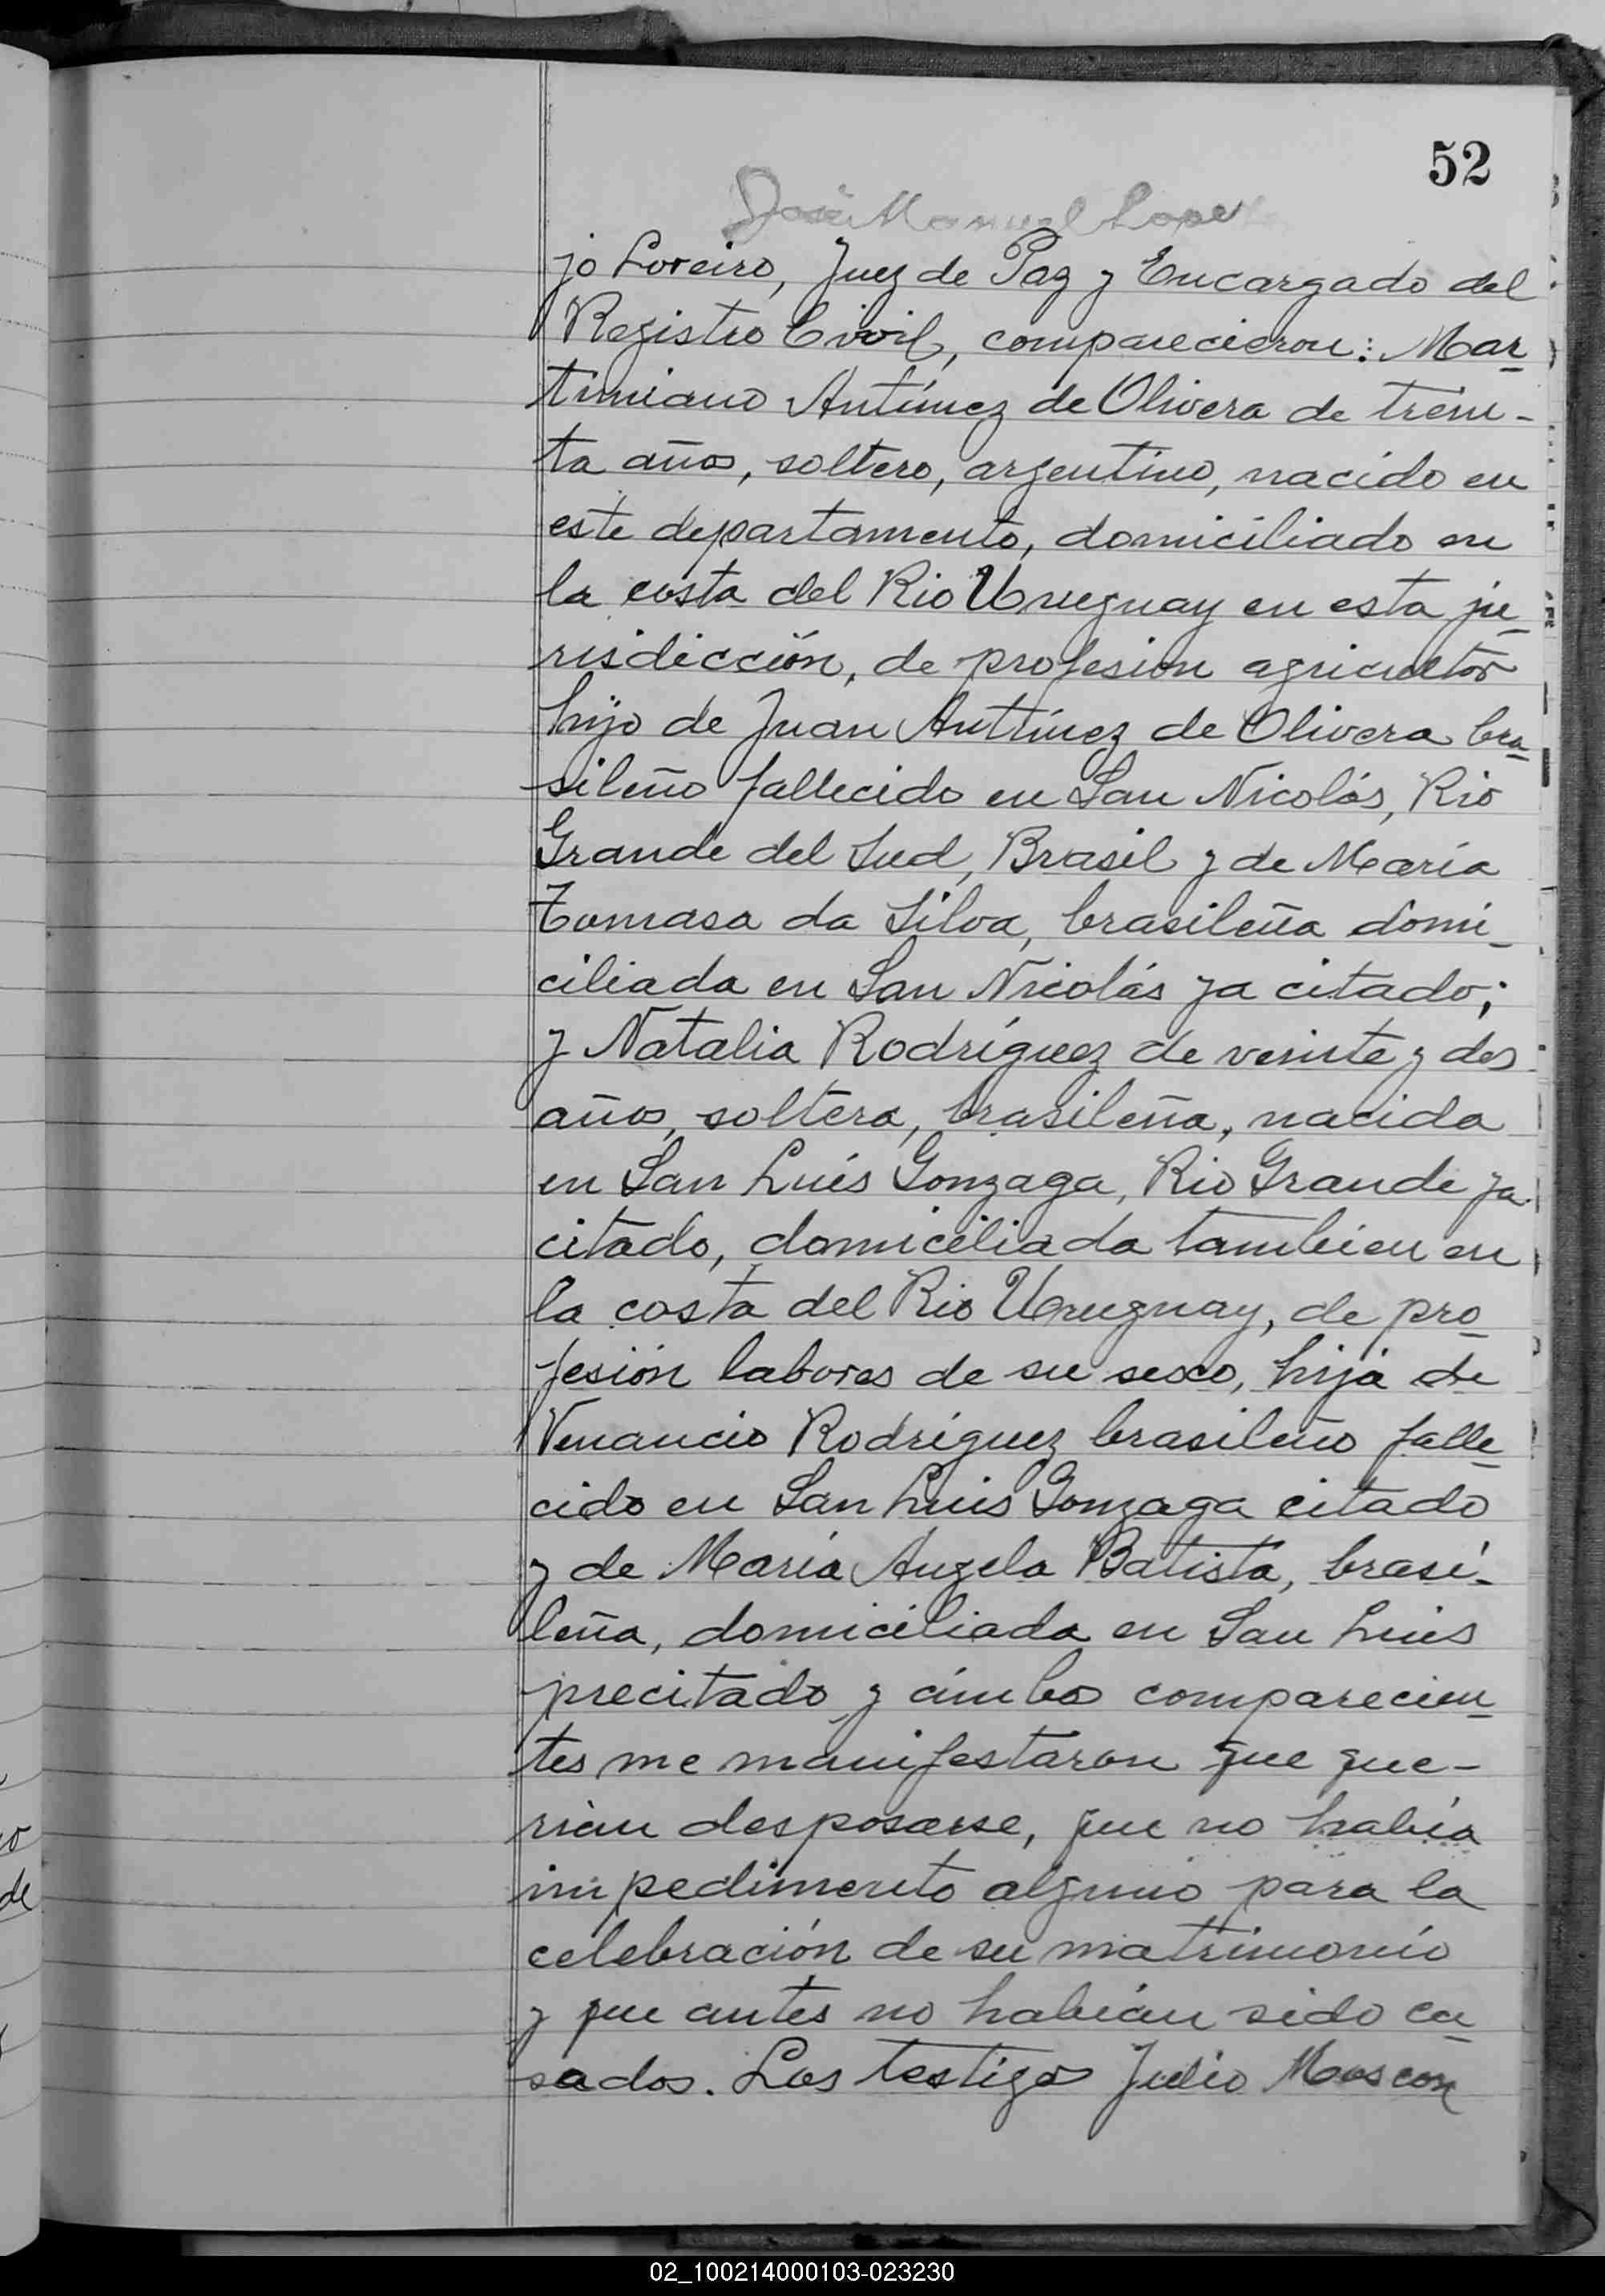 52
José Manuel Lopez
jo Loreiro, Juez de Paz y Encargado del
Registro Civil, comparecieron: Mar-
timiano Antúnez de Olivera de trein-
ta años, soltero, argentino, nacido en
este departamento, domiciliado en
la costa del Rio Uruguay en esta ju-
risdicción, de profesion agricultor
hijo de Juan Anttúnez de Olivera bra-
sileño fallecido en San Nicolás, Rio
Grande del Sud, Brasil y de María
Tomasa da Silva, brasileña domi-
ciliada en San Nicolás ya citado;
y Natalia Rodríguez de veinte y dos
años, soltera, brasileña, nacida
en San Luis Gonzaga, Rio Grande ya
citado, domiciliada tambien en
la costa del Rio Uruguay, de pro-
fesión labores de su sexo, hija de
Venancio Rodríguez brasileño falle-
cido en San Luis Gonzaga citado
y de María Angela Batista, brasi-
leña, domiciliada en San Luis
precitado y ámbos comparecien-
tes me manifestaron que que-
rian desposarse, que no había
impedimento alguno para la
celebración de su matrimonio
y que antes no habían sido ca-
sados. Los testigos Julio Moscon
02_100214000103-023230